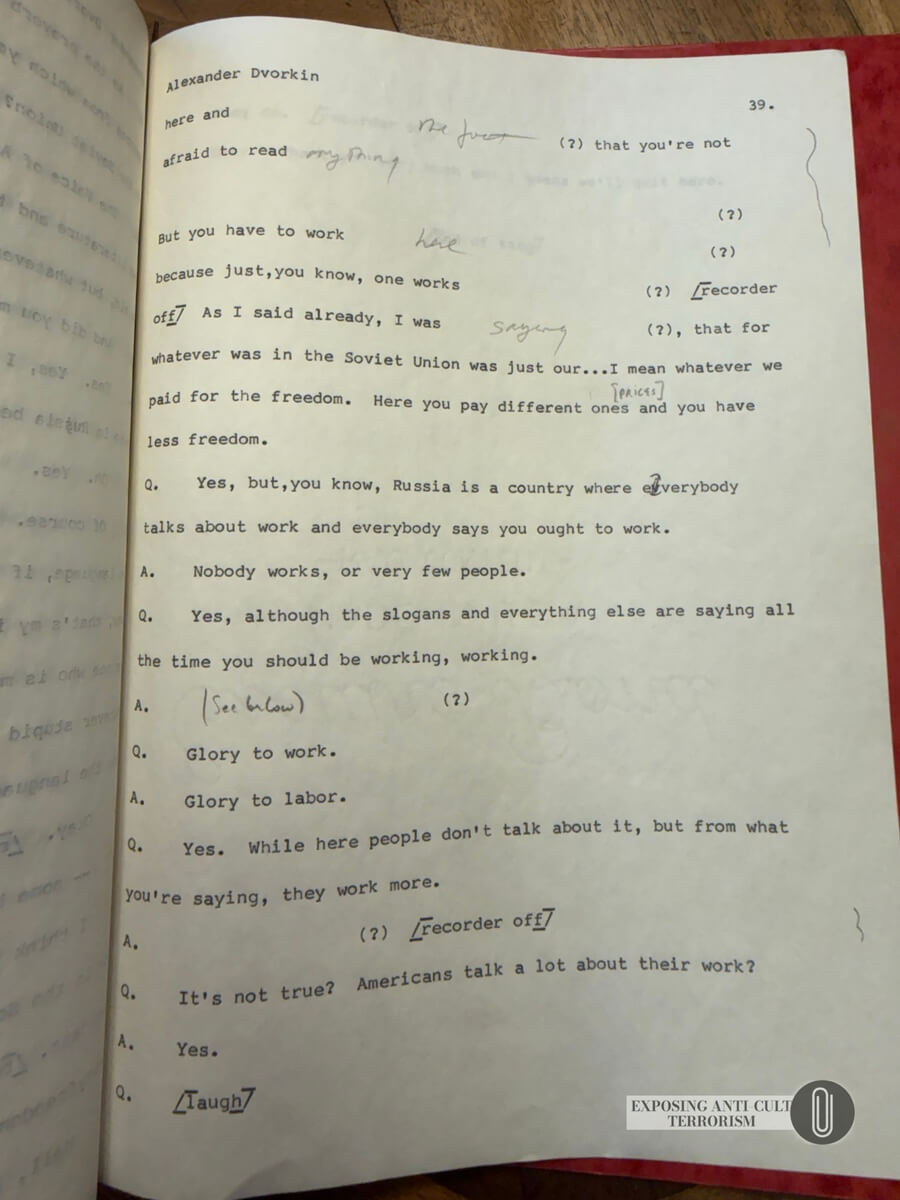 Alexander Dvorkin
39.
here and
afraid to read anything the fact (?) that you're not
(?)
But you have to work here
(?)
because just,you know, one works
(?) [recorder
off] As I said already, I was saying (?), that for
whatever was in the Soviet Union was just our...I mean whatever we
[prices]
paid for the freedom. Here you pay different ones and you have
less freedom.
Q. Yes, but,you know, Russia is a country where everybody
talks about work and everybody says you ought to work.
A. Nobody works, or very few people.
Q. Yes, although the slogans and everything else are saying all
the time you should be working, working.
A. (See below) (?)
Q. Glory to work.
A. Glory to labor.
Q. Yes. While here people don't talk about it, but from what
you're saying, they work more.
A. (?) [recorder off]
Q. It's not true? Americans talk a lot about their work?
A. Yes.
Q. [laugh]
EXPOSING ANTI-CULT
TERRORISM